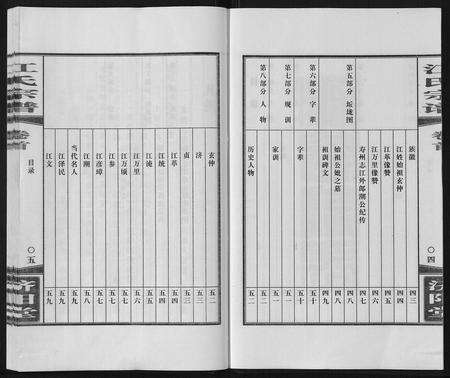 江氏宗谱
卷首
〇四
济阳堂
族徽 四三
江姓始祖玄仲 四四
江革像赞 四五
江万里像赞 四六
寿州志江外郎潮公纪传 四七
第五部分 坵垅图
始祖公媪之墓 四八
祖训碑文 四九
第六部分 字辈
字辈 五十
第七部分 规训
家训 五一
第八部分 人物
历史人物 五二
江氏宗谱
卷首
目录
〇五
济阳堂
玄仲 五二
济 五三
贞 五三
江革 五四
江统 五四
江淹 五五
江万里 五六
江万顷 五七
江参 五七
江彦璋 五七
江潮 五八
当代名人
江泽民 五九
江文 五九